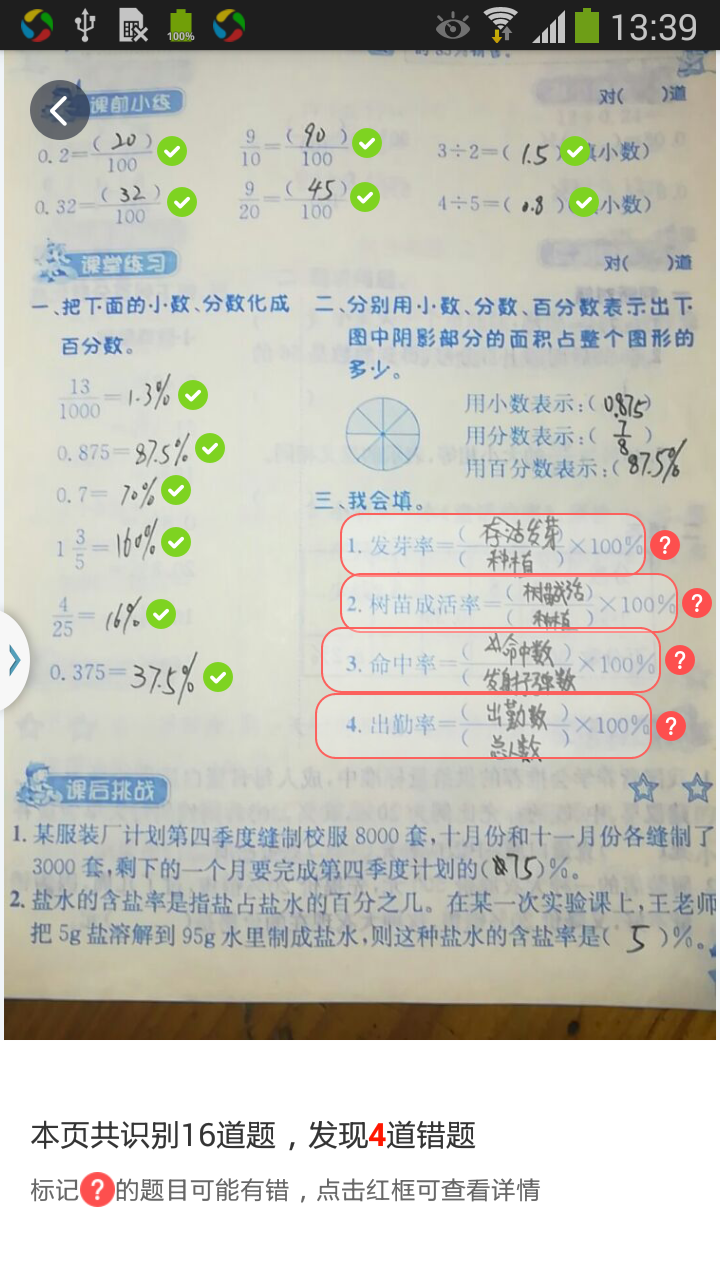 100%
13:39
课前小练
对( )道
0.2=(20)/100
9/10=(90)/100
3÷2=(1.5)(填小数)
0.32=(32)/100
9/20=(45)/100
4÷5=(0.8)(填小数)
课堂练习
对( )道
一、把下面的小数、分数化成
百分数。
13/1000=1.3%
0.875=87.5%
0.7=70%
1 3/5=160%
4/25=16%
0.375=37.5%
二、分别用小数、分数、百分数表示出下
图中阴影部分的面积占整个图形的
多少。
用小数表示:(0.875)
用分数表示:(7/8)
用百分数表示:(87.5%
三、我会填。
1. 发芽率=(存活发芽)/(种植)×100%
2. 树苗成活率=(树苗成活)/(种植)×100%
3. 命中率=(命中数)/(发射子弹数)×100%
4. 出勤率=(出勤数)/(总人数)×100%
课后挑战
1. 某服装厂计划第四季度缝制校服 8000 套,十月份和十一月份各缝制了
3000 套,剩下的一个月要完成第四季度计划的(75)%。
2. 盐水的含盐率是指盐占盐水的百分之几。在某一次实验课上,王老师
把 5g 盐溶解到 95g 水里制成盐水,则这种盐水的含盐率是( 5 )%。
本页共识别16道题，发现4道错题
标记?的题目可能有错，点击红框可查看详情